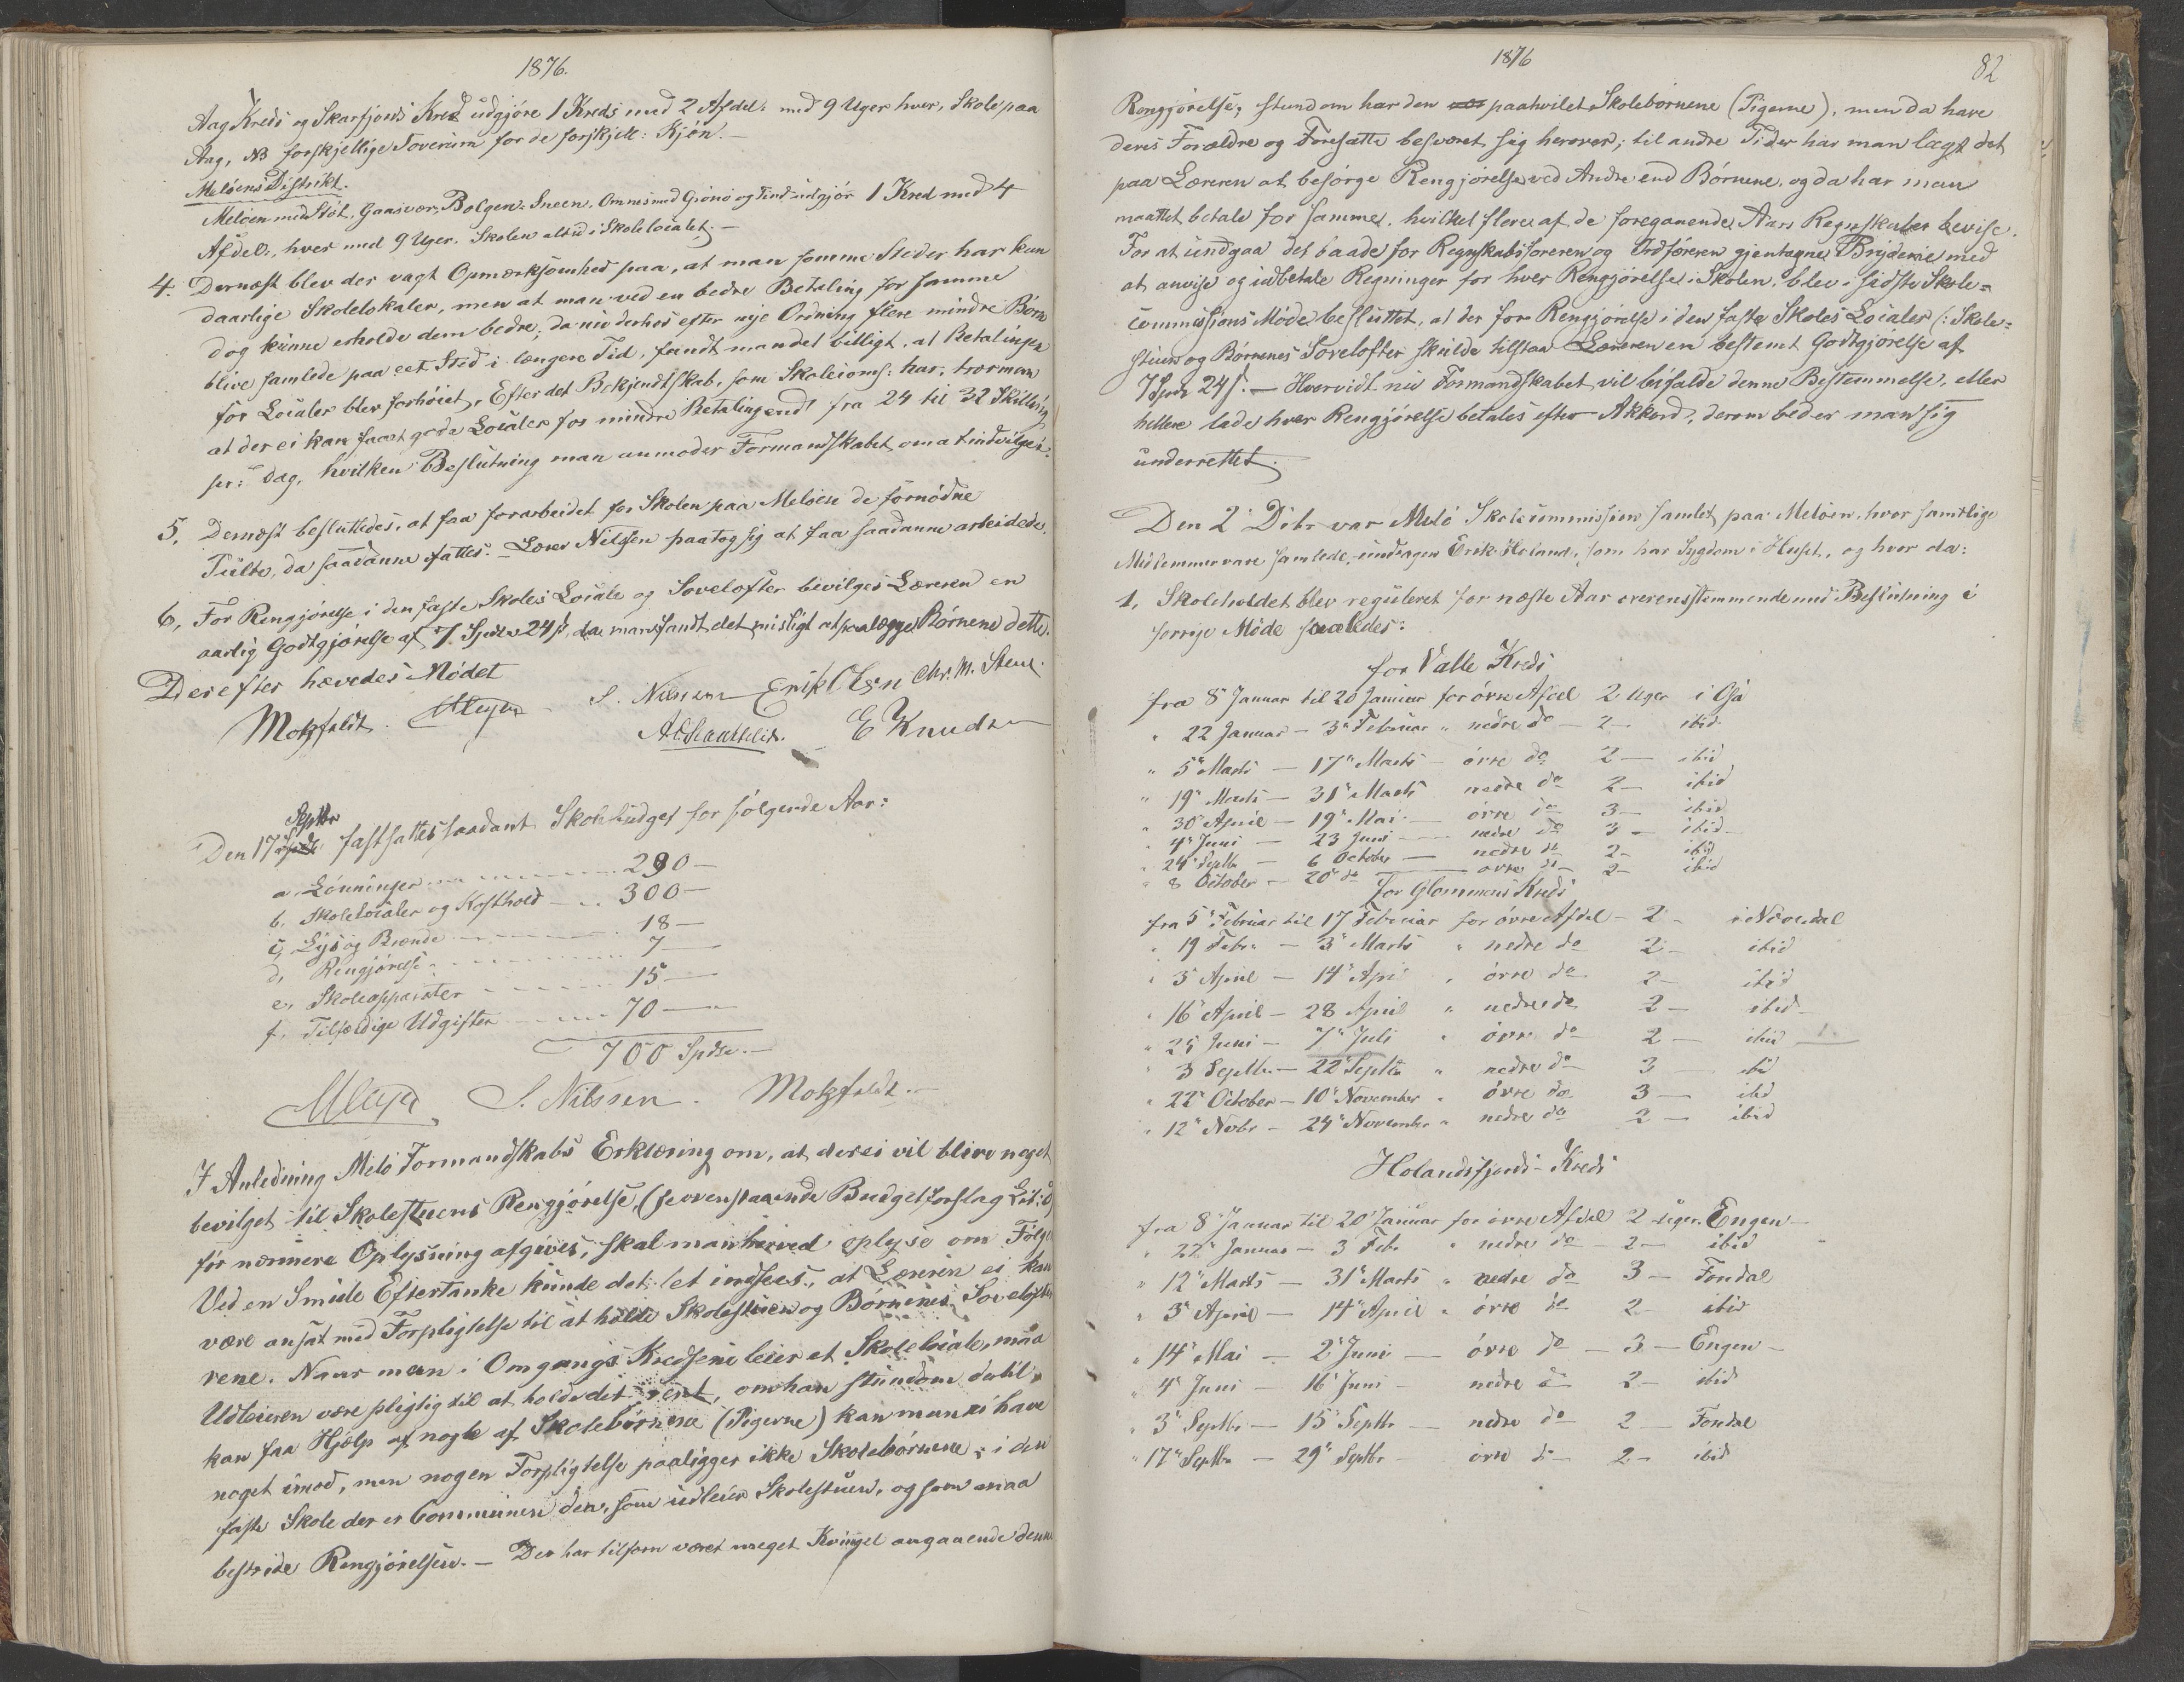 1876.
Aag Kreds og Skarsfjords Kreds udgjøre 1 Kreds med 2 Afdel: med 9 Uger hver, Skole paa
Aag, NB forskjellige Soverum for de forskjell: Kjøn.-
Meløens Distrikt.
Meløen med Støt, Gaasvær, Bolgen, Sneen, Omnes med Grønø og Tind udgjør 1 Kreds med 4
Afdel:, hver med 9 Uger. Skolen altid i Skolelocalet.-
4. Dernæst blev der vagt Opmærksomhed paa, at man somme Steder har kun
daarlige Skolelokaler, men at man ved en bedre Betaling for samme
dog kunne erholde dem bedre; da nu derhos efter nye Ordning flere mindre Børn
blive samlede paa eet Sted i længere Tid, fandt man det billigt, at Betalingen
for Localer blev forhøiet. Efter det Bekjendtskab, som Skolecoms: har, tror man
at der ei kan faaes gode Localer for mindre Betaling end fra 24 til 32 Skilling
pr: Dag, hvilken Beslutning man anmoder Formandskabet om at indvilge i.
5. Dernæst besluttedes, at faa forarbeidet for Skolen paa Meløen de fornødne
Pulte, da saadanne fattes.- Lærer Nilssen paatog sig at faa saadanne arbeidede.
6, For Rengjørelse i den faste Skoles Locale og Sovelofter bevilges Læreren en
aarlig Godtgjørelse af 7 Spdlr 24 s, da man fandt det misligt at paalægge Børnene dette.
Derefter hævedes Mødet
Motzfeldt. AMeyer S. Nilssen Erik Olsen Chr. M. Steen.
E Knudsen
Septbr
Den 17 fastsattes saadant Skolebudget for følgende Aar:
a. Lønninger 290-
b, Skolelocaler og Kosthold 300-
c, Lys og Brænde 18-
d, Rengjørelse 7-
e, Skoleapparater 15-
f, Tilfældige Udgifter 70-
700 Spdlr.-
AMeyer. S. Nilssen. Motzfeldt.-
I Anledning Melø Formandskabs Erklæring om, at der ei vil blive noget
bevilget til Skolestuens Rengjørelse, (se ovenstaaende Budgetforslag Lit: d)
før nærmere Oplysning afgives, skal man herved oplyse om Følge
Ved en Smule Eftertanke kunde det let indsees, at Læreren ei kan
være ansat med Forpligtelse til at holde Skolestuen og Børnenes Sovelofter
rene. Naar man i Omgangs Kredsene leier et Skolelocale, maa
Udleieren være pligtig til at holde det rent, om han stundom dertil
kan faa Hjælp af nogle af Skolebørnene (Pigerne) kan man ei have
noget imod, men nogen Forpligtelse paaligger ikke Skolebørnene; i den
faste Skole der er Communen den, som udleier Skolestuen, og som maa
bestride Rengjørelsen.- Der har tilforn været meget Kvingel angaaende denne
1876
82
Rengjørelse; stundom har den paahvilet Skolebørnene (Pigerne), men da have
deres Forældre og Foresatte besværet sig herover; til andre Tider har man lagt det
paa Læreren at besørge Rengjørelse ved Andre end Børnene, og da har man
maattet betale for samme, hvilket flere af de foregaaende Aars Regnskaber bevise.
For at undgaa det baade for Regnskabsføreren og Ordføreren gjentagne Bryderie med
at anvise og udbetale Regninger for hver Rengjørelse i Skolen, blev i sidste Skole=
commissions Møde besluttet, at der for Rengjørelse i den faste Skoles Localer (: Skole=
stuen og Børnenes Sovelofter skulde tilstaaes Læreren en bestemt Godtgjørelse af
7 Spdlr 24 s.- Hvorvidt nu Formandskabet vil bifalde denne Bestemmelse, eller
hellere lade hver Rengjørelse betales efter Akkord, derom beder man sig
underrettet.
Den 2' Debr var Melø Skolecommission samlet paa Meløen, hvor samtlige
Medlemmer vare samlede, undtagen Erik Holand, som har Sygdom i Huset, og hvor da:
1, Skoleholdet blev reguleret for næste Aar overensstemmende med Beslutning i
forrige Møde saaledes:
for Valle Kreds
fra 8' Januar til 20 Januar for øvre Afdel 2 Uger i Gjø
" 22 Januar - 3' Februar " nedre do - 2 - ibid
" 5' Marts - 17' Marts - øvre do 2 - ibid
" 19' Marts - 31' Marts nedre do 2 - ibid
" 30' April - 19' Mai - øvre do 3 - ibid
" 4' Juni - 23 Juni - nedre do 3 - ibid
" 24' Septbr - 6 October - nedre do 2 - ibid
" 8 October - 20' do - øvre do - 2 - ibid
for Glommens Kreds
fra 5' Februar til 17 Februar for øvre Afdel - 2 - i Næverdal
" 19 Febr - 3' Marts " nedre do 2 - ibid
" 3' April - 14' April " øvre do 2 - ibid
" 16' April - 28 April " nedre do 2 - ibid
" 25 Juni - 7' Juli " øvre do 2 - ibid
" 3 Septbr - 22' Septbr " nedre do 3 ibid
" 22' October - 10' November " øvre do 3 - ibid
" 12' Nobr - 24' November " nedre do 2 - ibid
Holandsfjords Kreds
fra 8' Januar til 20' Januar for øvre Afdel 2 Uger. Engen -
" 22' Januar - 3 Febr " nedre do - 2 - ibid
" 12' Marts - 31' Marts " nedre do 3 - Fondal
" 3' April - 14' April " øvre do 2 - ibid
" 14' Mai - 2' Juni - øvre do - 3 - Engen -
" 4' Juni - 16' Juni - nedre do 2 - ibid
" 3' Septbr - 15' Septbr - nedre do 2 - Fondal
" 17' Septbr - 29' Septbr - øvre do - 2 - ibid